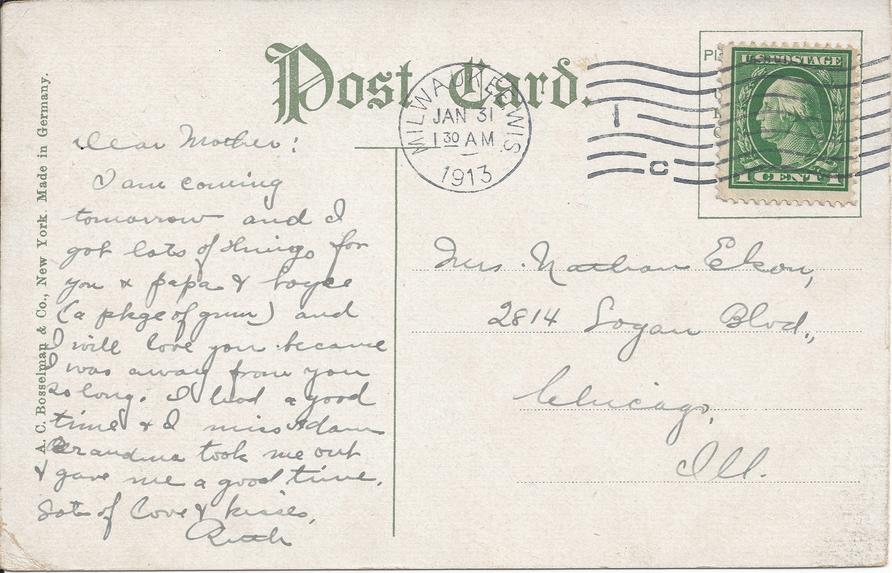 Post Card.
MILWAUKEE, WIS.
JAN 31
1 30 AM
1913
1
C
PL
U.S. POSTAGE
1 CENT 1
A. C. Bosselman & Co., New York. Made in Germany.
Dear Mother:
I am coming
tomorrow and I
got lots of things for
you & papa &
(a pkge of gum) and
I will love you because
I was away from you
so long. I had a good
time & I miss Adam
Grandma took me out
& gave me a good time.
Lots of Love & kisses,
Ruth
Mrs. Nathan Ekon,
2814 Logan Blvd.,
Chicago,
Ill.